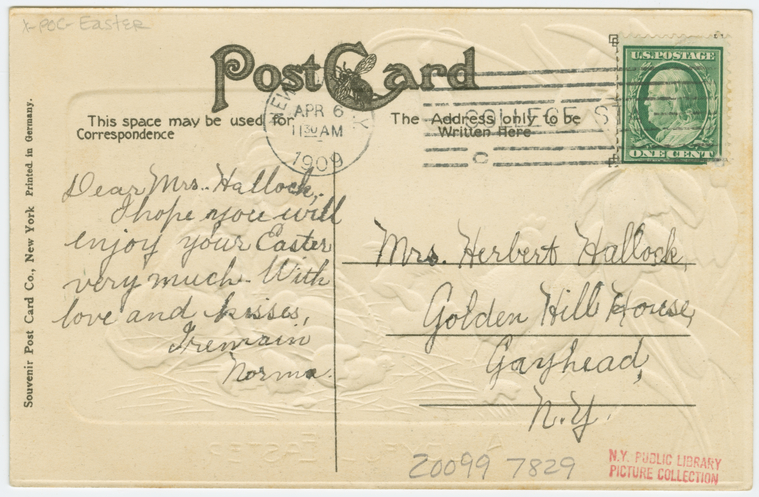 x-POC-Easter
Post Card
This space may be used for
Correspondence
The Address only to be
Written Here
APR 6
11 30 AM
1909
COLLEGE S
C
U.S. POSTAGE
ONE CENT
Souvenir Post Card Co., New York Printed in Germany.
Dear Mrs. Hallock,
I hope you will
enjoy your Easter
very much. With
love and kisses,
Iremain
Norma.
Mrs. Herbert Hallock,
Golden Hill House,
Gayhead,
N.Y.
20099 7829
N.Y. PUBLIC LIBRARY
PICTURE COLLECTION